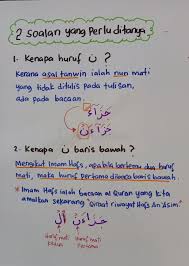 2 soalan yang perlu ditanya
1. Kenapa huruf ن ?
Kerana asal tanwin ialah nun mati
yang tidak ditulis pada tulisan,
ada pada bacaan.
جَزَاءً
جَزَاءَنْ
2. Kenapa ن baris bawah ?
Mengikut Imam Hafs, apabila bertemu dua huruf
mati, maka huruf pertama dibaca baris bawah.
* Imam Hafs ialah bacaan al Quran yang kita
amalkan sekarang "Qiraat riwayat Hafs An 'Asim."
جَزَاءَنْ الْ
Huruf mati Huruf mati
kedua pertama